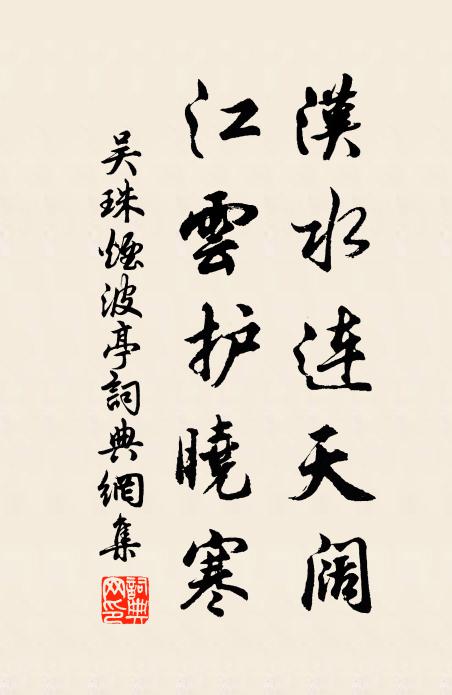 漢水連天阔
江雲护曉寒
吴珠煙波亭詞典網集
詞典网印